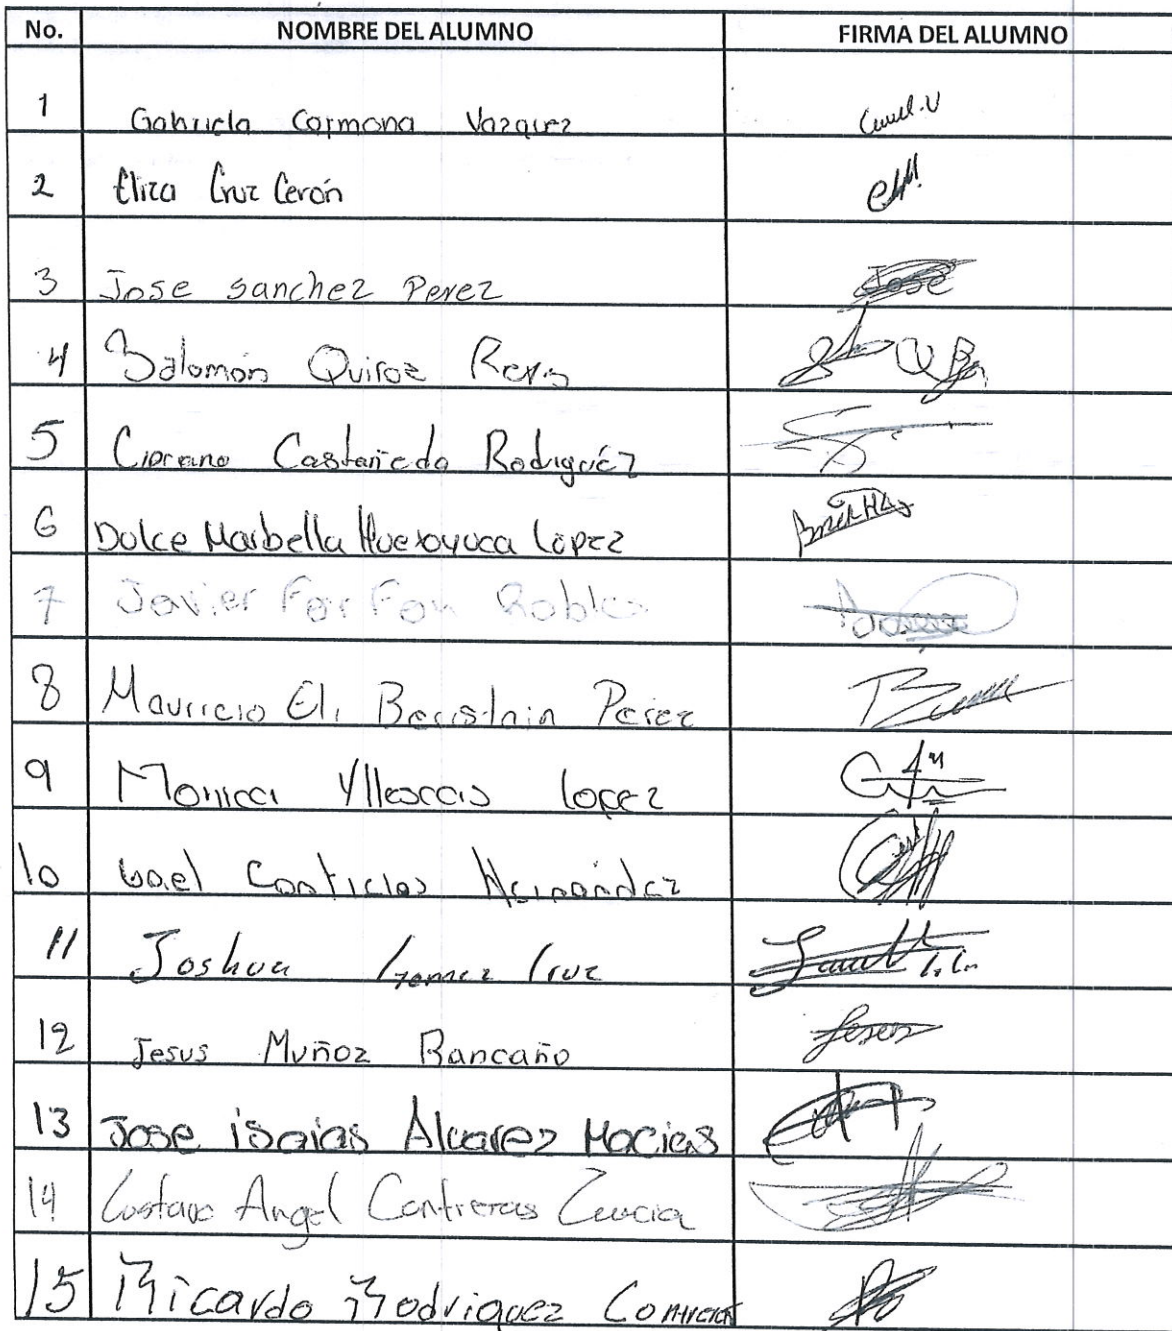 No. NOMBRE DEL ALUMNO FIRMA DEL ALUMNO
1 Gabriela Carmona Vazquez
2 Eliza Cruz Cerón
3 Jose sanchez Perez Jose
4 Salomón Quiroz Reyes
5 Cipriano Castañeda Rodriguéz
6 Dulce Marbella Huexoyuca Lopez
7 Javier Farfan Robles
8 Mauricio Eli Beristain Perez
9 Monica Yllescas Lopez
10 Gael Hernández
11 Joshua Gomez Cruz
12 Jesus Muñoz Rancaño Jesus
13 Jose isaias Alvarez Macias
14 Gustavo Angel Contreras
15 Ricardo Rodriguez Contreras